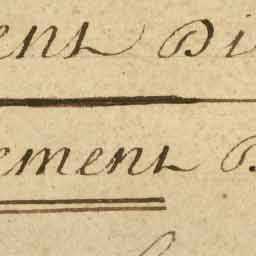 ent Di
ement